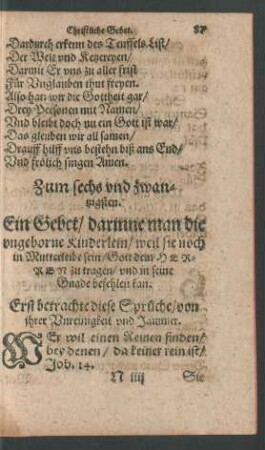 Christliche Gebet. 87
Dardurch erkenn des Teuffels List/
Der Welt vnd Ketzereyen/
Darmit Er vns zu aller frist
Für Vnglauben thut freyen.
Also han wir die Gottheit gar/
Drey Personen mit Namen/
Vnd bleibt doch nu ein Gott ist war/
Das gleuben wir all samen/
Drauff hilff vns bestehn biß ans End/
Vnd frölich singen Amen.
Zum sechs vnd zwan-
tzigsten.
Ein Gebet/ darinne man die
vngeborne Kinderlein/ weil sie noch
in Mutterleibe sein/ Gott dem HER-
REN zu tragen/ vnd in seine
Gnade befehlen kan.
Erst betrachte diese Sprüche/ von
ihrer Vnreinigkeit vnd Jammer.
WEr wil einen Reinen finden/
bey denen/ da keiner rein ist/
Job. 14.
N iiij Sie